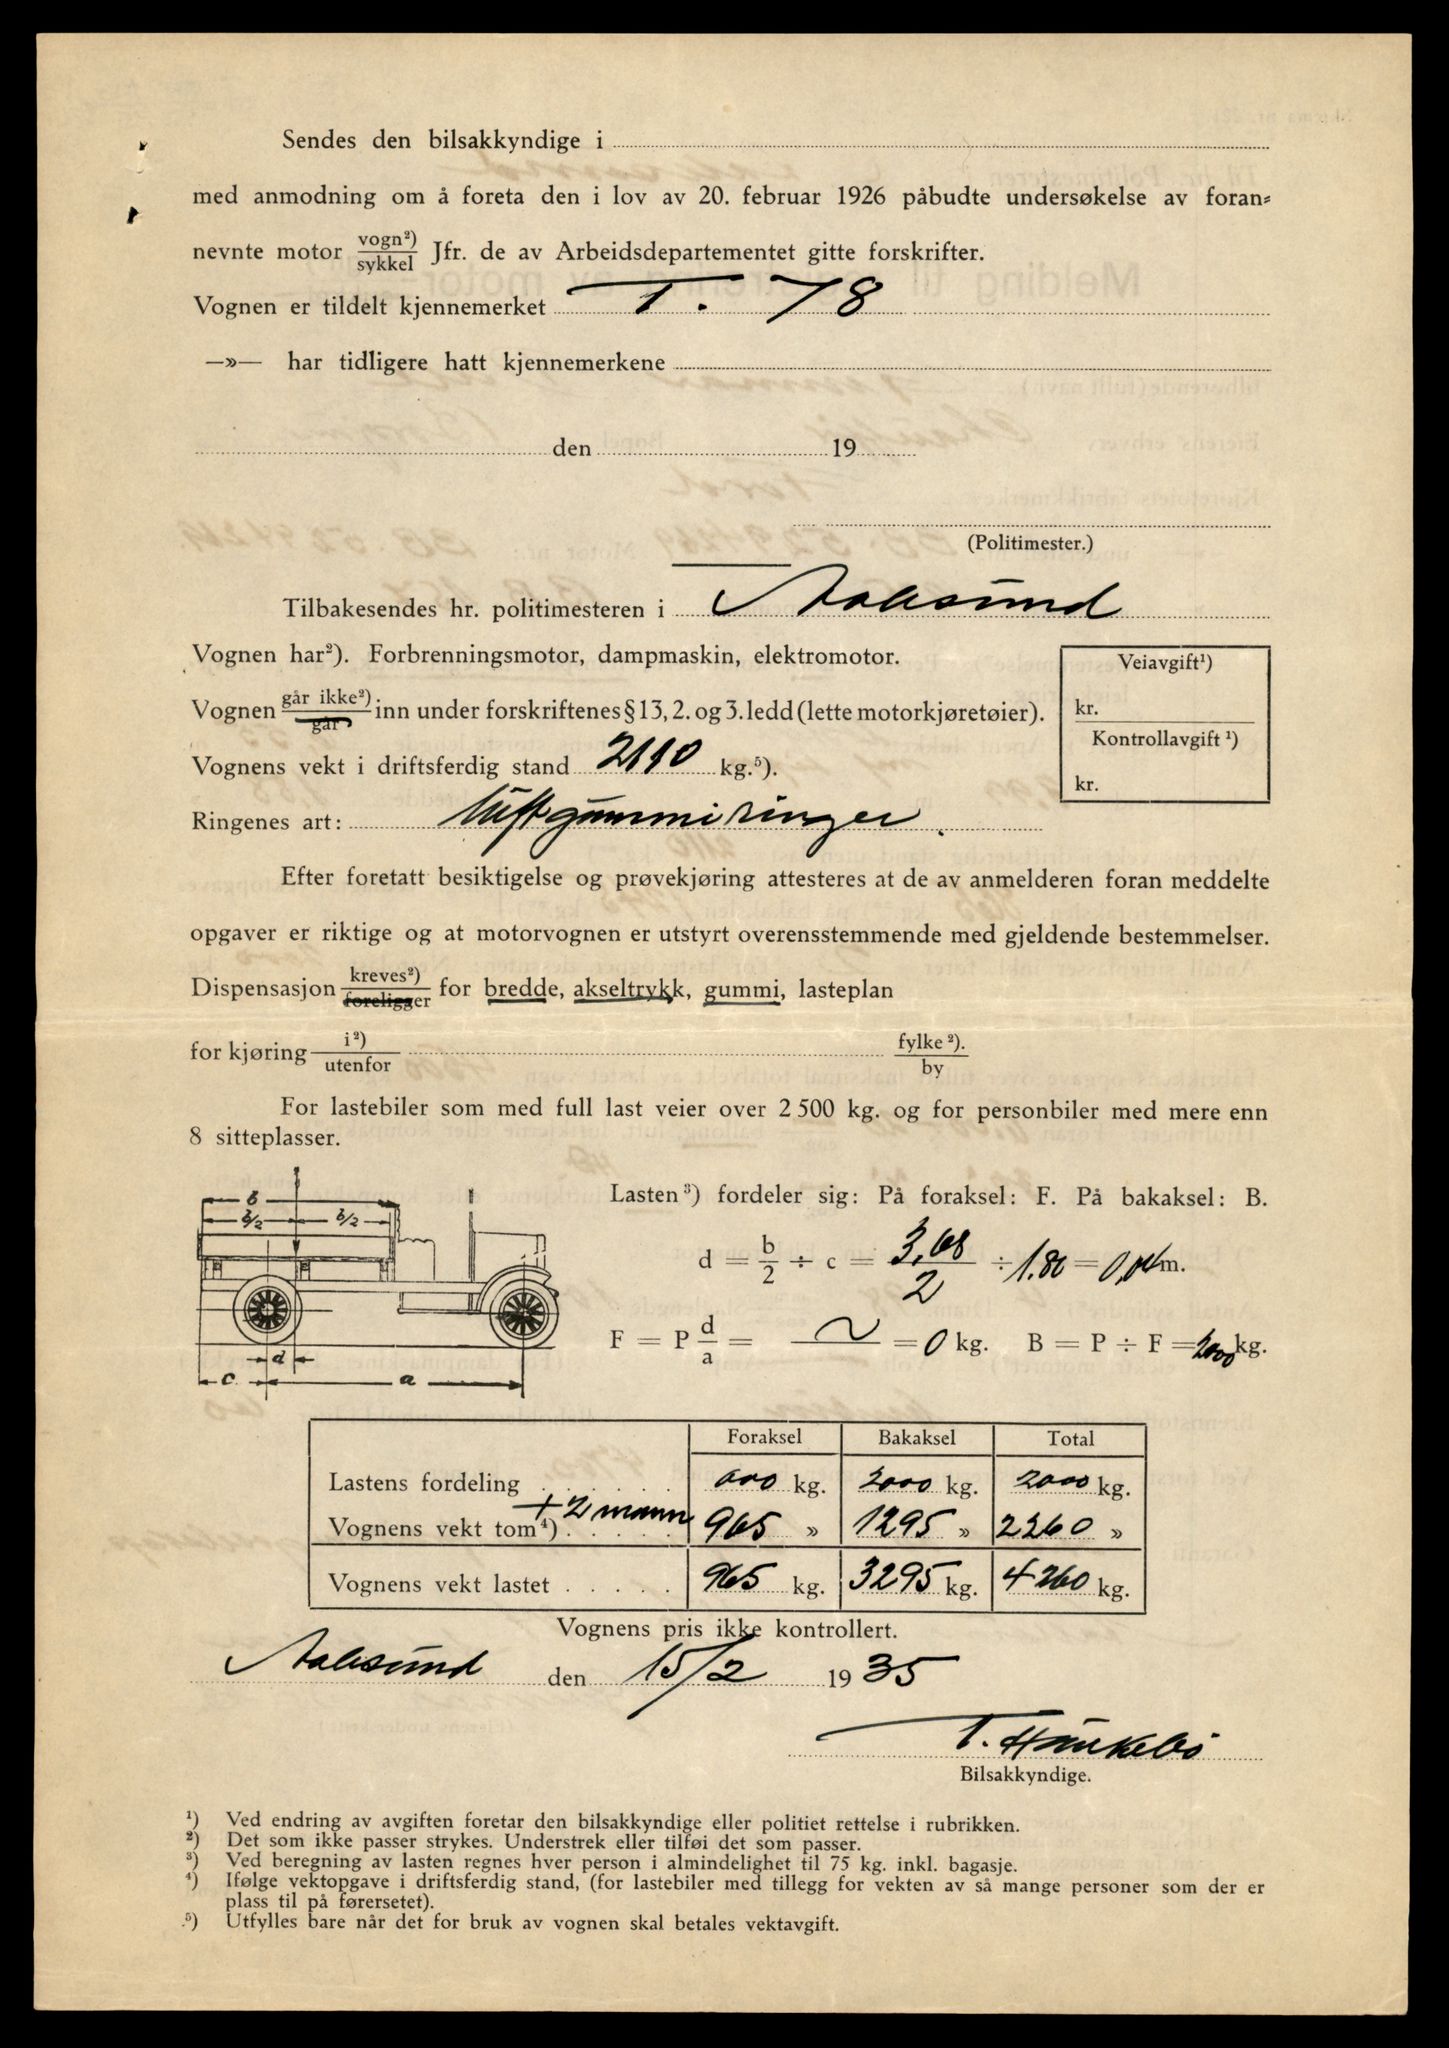 Sendes den bilsakkyndige i
med anmodning om å foreta den i lov av 20. februar 1926 påbudte undersøkelse av foran=
nevnte motor vogn²)/sykkel Jfr. de av Arbeidsdepartementet gitte forskrifter.
Vognen er tildelt kjennemerket T. 78
—»— har tidligere hatt kjennemerkene
den 19
(Politimester.)
Tilbakesendes hr. politimesteren i Aalesund
Vognen har²). Forbrenningsmotor, dampmaskin, elektromotor.
Veiavgift¹)
kr.
Vognen går ikke²)/går inn under forskriftenes § 13, 2. og 3. ledd (lette motorkjøretøier).
Kontrollavgift ¹)
kr.
Vognens vekt i driftsferdig stand 2110 kg.⁵).
Ringenes art: luftgummiringer.
Efter foretatt besiktigelse og prøvekjøring attesteres at de av anmelderen foran meddelte
opgaver er riktige og at motorvognen er utstyrt overensstemmende med gjeldende bestemmelser.
Dispensasjon kreves²)/foreligger for bredde, akseltrykk, gummi, lasteplan
for kjøring i²)/utenfor fylke²)./by
For lastebiler som med full last veier over 2 500 kg. og for personbiler med mere enn
8 sitteplasser.
b
b/2 b/2
d
c a
Lasten³) fordeler sig: På foraksel: F. På bakaksel: B.
d = b/2 ÷ c = 3,68/2 ÷ 1.80 = 0,04 m.
F = P d/a = = 0 kg. B = P ÷ F = 2000 kg.
Foraksel Bakaksel Total
Lastens fordeling . . . . . . 000 kg. 2000 kg. 2000 kg.
+ 2 mann
Vognens vekt tom⁴) . . . . . 965 » 1295 » 2260 »
Vognens vekt lastet . . . . . 965 kg. 3295 kg. 4260 kg.
Vognens pris ikke kontrollert.
Aalesund den 15/2 1935
Bilsakkyndige.
¹) Ved endring av avgiften foretar den bilsakkyndige eller politiet rettelse i rubrikken.
²) Det som ikke passer strykes. Understrek eller tilføi det som passer.
³) Ved beregning av lasten regnes hver person i almindelighet til 75 kg. inkl. bagasje.
⁴) Ifølge vektopgave i driftsferdig stand, (for lastebiler med tillegg for vekten av så mange personer som der er
plass til på førersetet).
⁵) Utfylles bare når det for bruk av vognen skal betales vektavgift.